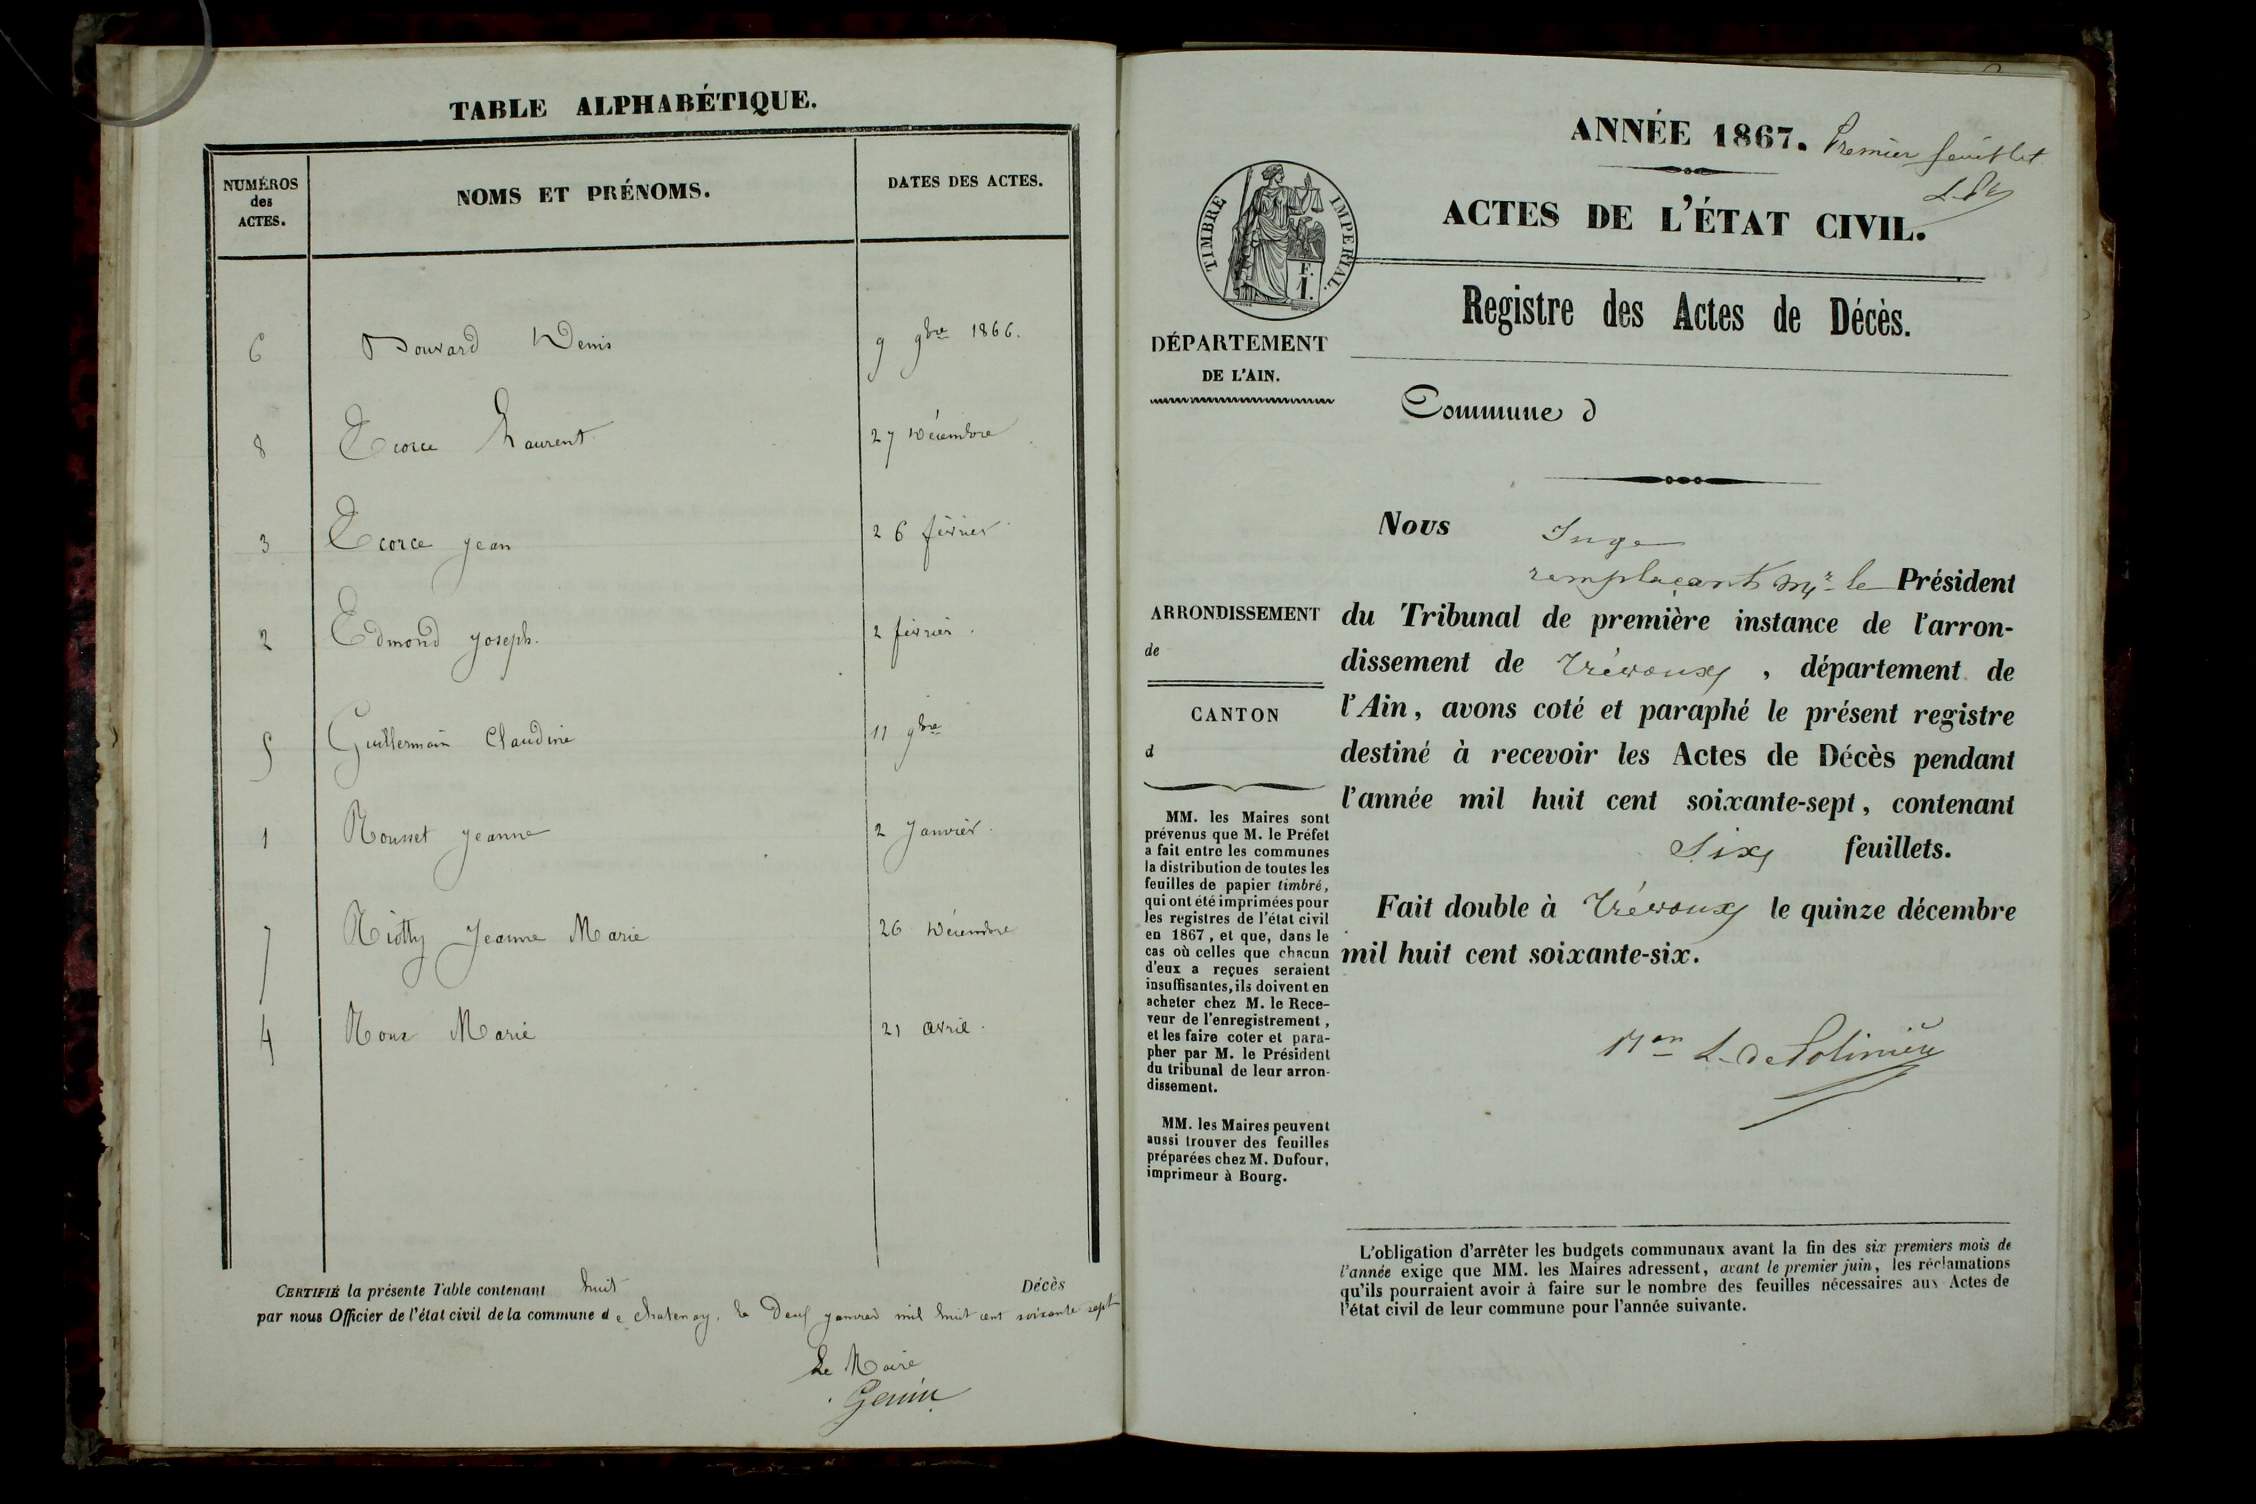 TABLE ALPHABÉTIQUE.
NUMÉROS
des
ACTES.
NOMS ET PRÉNOMS.
DATES DES ACTES.
6 Bouvard Denis 9 9bre 1866.
8 Ecorce Laurent 27 Décembre
3 Ecorce Jean 26 février
2 Edmond Joseph. 2 février.
5 Guillermain Claudine 11 9bre
1 Rousset Jeanne 2 Janvier.
7 Riotty Jeanne Marie 26 Décembre
4 Roux Marie 21 avril.
CERTIFIÉ la présente Table contenant huit Décès
par nous Officier de l'état civil de la commune de Chatenay, le Deux janvier mil huit cent soixante sept
Le Maire
Genin
ANNÉE 1867. Premier feuillet
ACTES DE L'ÉTAT CIVIL.
TIMBRE IMPERIAL.
F.
I.
Registre des Actes de Décès.
DÉPARTEMENT
DE L'AIN.
Commune d
Nous Juge
remplaçant Mr le Président
du Tribunal de première instance de l'arron-
dissement de Trévoux, département de
l'Ain, avons coté et paraphé le présent registre
destiné à recevoir les Actes de Décès pendant
l'année mil huit cent soixante-sept, contenant
Six feuillets.
Fait double à Trévoux le quinze décembre
mil huit cent soixante-six.
L. de Polinière
ARRONDISSEMENT
de
CANTON
d
MM. les Maires sont
prévenus que M. le Préfet
a fait entre les communes
la distribution de toutes les
feuilles de papier timbré,
qui ont été imprimées pour
les registres de l'état civil
en 1867, et que, dans le
cas où celles que chacun
d'eux a reçues seraient
insuffisantes, ils doivent en
acheter chez M. le Rece-
veur de l'enregistrement,
et les faire coter et para-
pher par M. le Président
du tribunal de leur arron-
dissement.
MM. les Maires peuvent
aussi trouver des feuilles
préparées chez M. Dufour,
imprimeur à Bourg.
L'obligation d'arrêter les budgets communaux avant la fin des six premiers mois de
l'année exige que MM. les Maires adressent, avant le premier juin, les réclamations
qu'ils pourraient avoir à faire sur le nombre des feuilles nécessaires aux Actes de
l'état civil de leur commune pour l'année suivante.